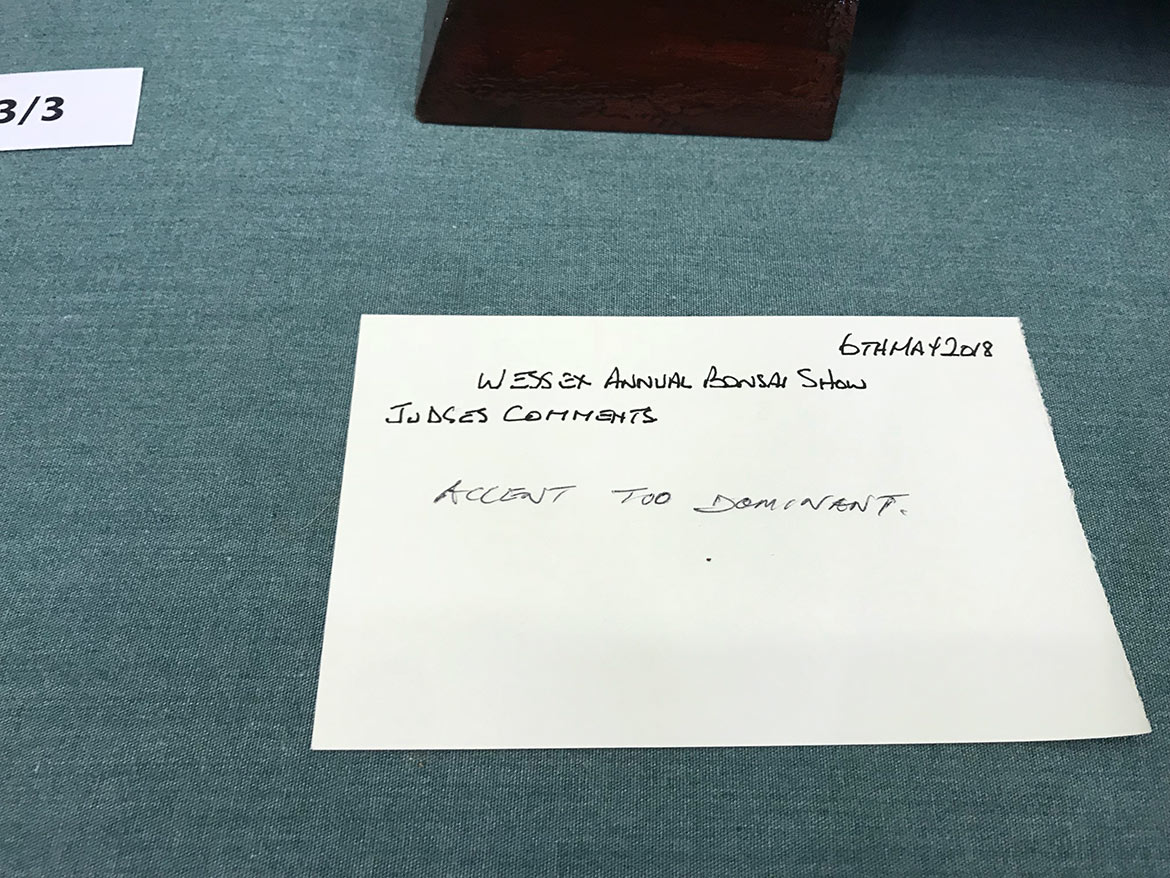 3/3
6TH MAY 2018
WESSEX ANNUAL BONSAI SHOW
JUDGES COMMENTS
ACCENT TOO DOMINANT.